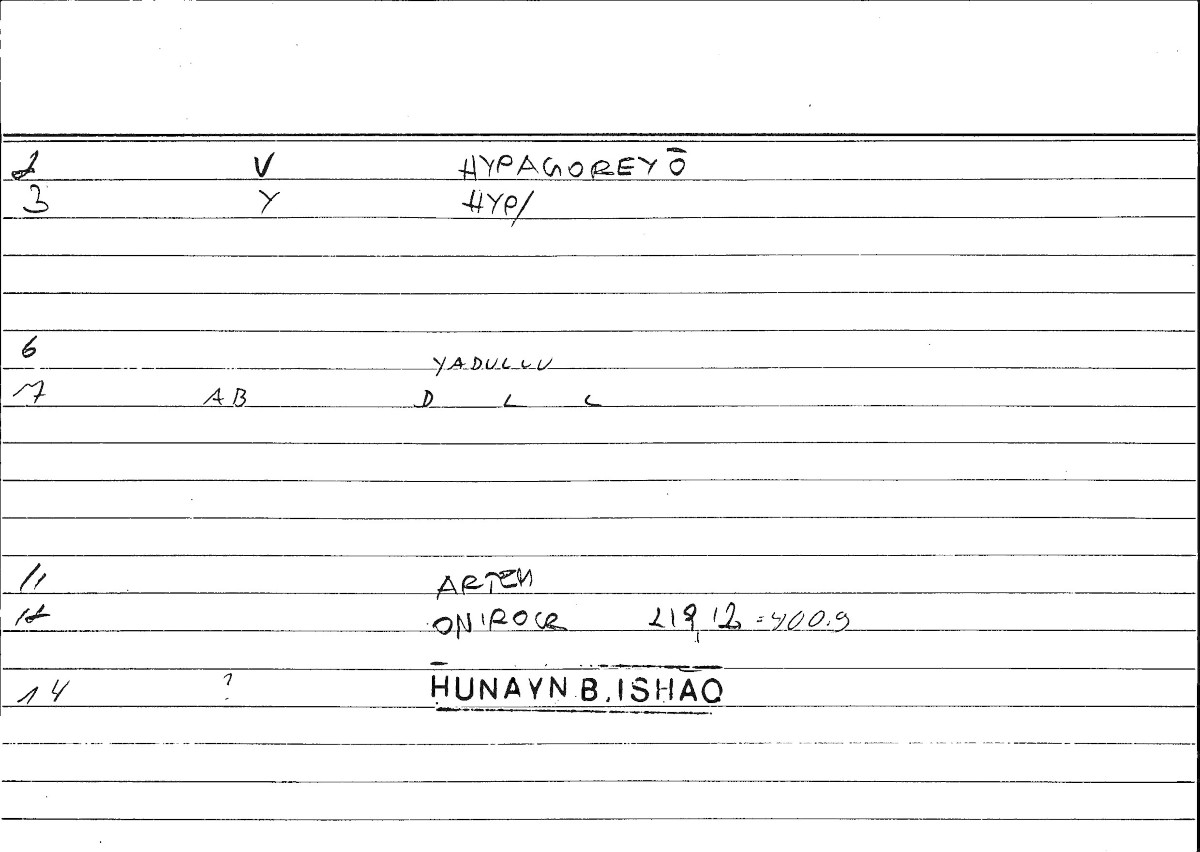 2 V HYPAGOREYŌ
3 Y HYP/
6 YADULLU
7 AB D L L
11 ARTEM
12 ONIROCR 219,12 = 400.9
14 ? HUNAYN B. ISHAQ